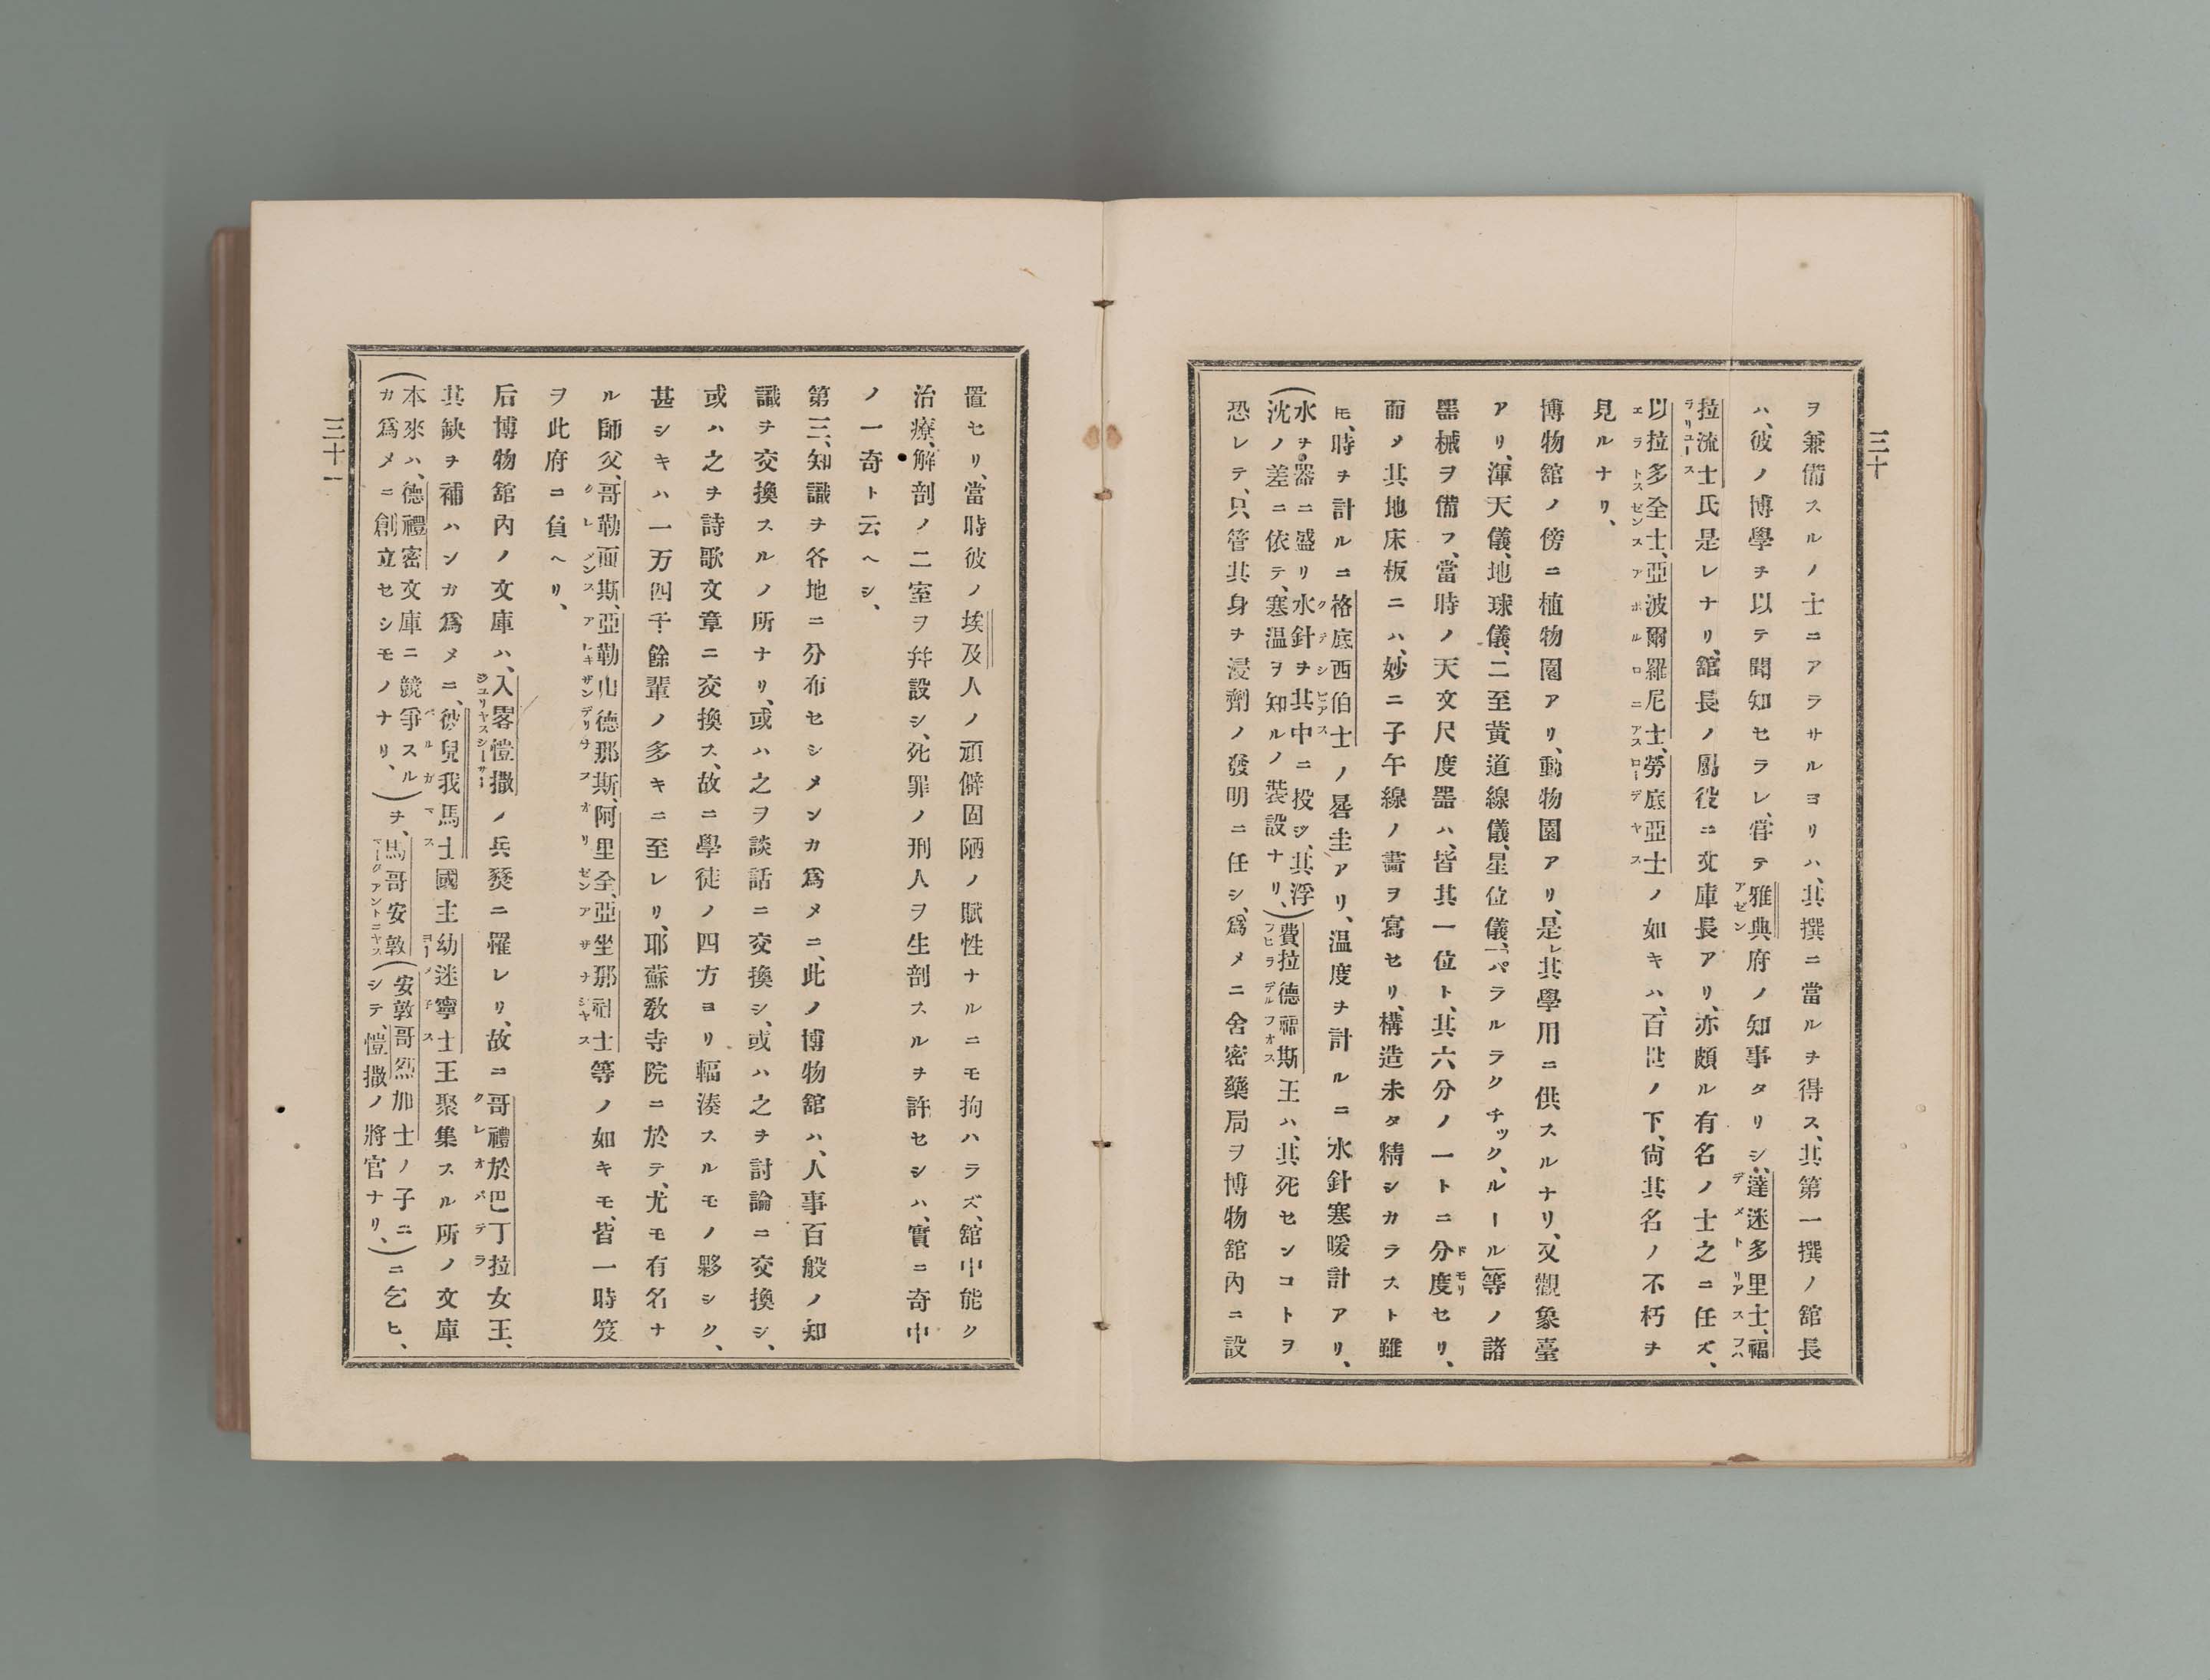 三十
ヲ兼備スルノ士ニアラサルヨリハ、其撰ニ當ルヲ得ス、其第一撰ノ舘長
ハ、彼ノ博學ヲ以テ聞知セラレ、甞テ雅典府ノ知事タリシ、達迷多里士、福
アゼン デメトリアスフハ
拉流士氏是レナリ、舘長ノ屬役ニ文庫長アリ、亦頗ル有名ノ士之ニ任ズ、
ラリユース
以拉多全士、亞波爾羅尼士、勞底亞士ノ如キハ、百世ノ下、尙其名ノ不朽ヲ
エラトスゼンス アポルロニアス ローデヤス
見ルナリ、
博物舘ノ傍ニ植物園アリ、動物園アリ、是レ其學用ニ供スルナリ、又觀象臺
アリ、渾天儀、地球儀、二至黃道線儀、星位儀、「パラルラクチック、ルール」等ノ諸
器械ヲ備フ、當時ノ天文尺度器ハ、皆其一位ト、其六分ノ一トニ分度セリ、
ドモリ
而メ其地床板ニハ、妙ニ子午線ノ畵ヲ寫セリ、構造未タ精シカラスト雖
𪜈、時ヲ計ルニ格底西伯士ノ晷圭アリ、温度ヲ計ルニ水針寒暖計アリ、
クテシビアス
(水ヲ器ニ盛リ水針ヲ其中ニ投ジ、其浮
沈ノ差ニ依テ、寒温ヲ知ルノ裝設ナリ、)費拉德福斯王ハ、其死センコトヲ
フヒラデルフオス
恐レテ、只管其身ヲ浸劑ノ發明ニ任シ、爲メニ舍密藥局ヲ博物舘內ニ設
置セリ、當時彼ノ埃及人ノ頑僻固陋ノ賦性ナルニモ拘ハラズ、舘中能ク
治療、解剖ノ二室ヲ幷設シ、死罪ノ刑人ヲ生剖スルヲ許セシハ、實ニ奇中
ノ一奇ト云ヘシ、
第三、知識ヲ各地ニ分布セシメンカ爲メニ、此ノ博物舘ハ、人事百般ノ知
識ヲ交換スルノ所ナリ、或ハ之ヲ談話ニ交換シ、或ハ之ヲ討論ニ交換シ、
或ハ之ヲ詩歌文章ニ交換ス、故ニ學徒ノ四方ヨリ輻湊スルモノ夥シク、
甚シキハ一万四千餘輩ノ多キニ至レリ、耶蘇敎寺院ニ於テ、尤モ有名ナ
ル師父、哥勒面斯、亞勒山德那斯、阿里全、亞坐那社士等ノ如キモ、皆一時笈
クレメンス アレキザンデリナヲ オリゼン アザナシヤス
ヲ此府ニ負ヘリ、
后博物舘內ノ文庫ハ、入畧愷撒ノ兵燹ニ罹レリ、故ニ哥禮於巴丁拉女王、
ジユリヤスシーサー クレオパテラ
其缺ヲ補ハンカ爲メニ、彼兒我馬士國主幼迷寧士王聚集スル所ノ文庫
ペルガマス ヨーメ子ス
(本來ハ、德禮密文庫ニ競爭スル
カ爲メニ創立セシモノナリ、)ヲ、馬哥安敦(安敦哥烈加士ノ子ニ
シテ、愷撒ノ將官ナリ、)ニ乞ヒ、
マークアントニヤス
三十一